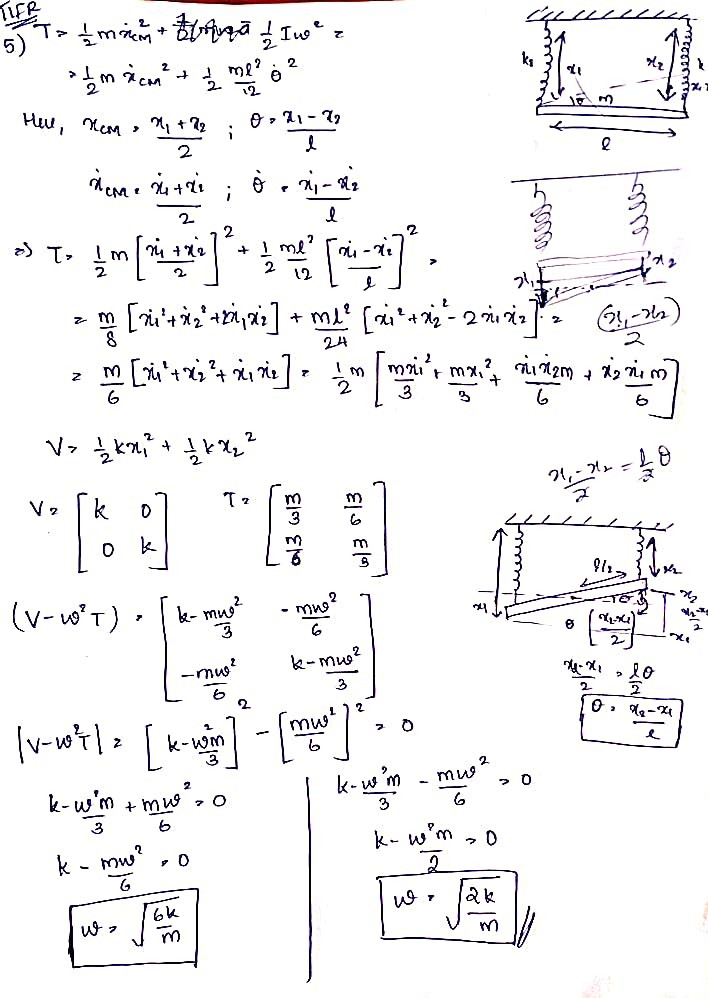 TIFR
5) T = 1/2 m ẋcm² + 1/2 Iω² =
= 1/2 m ẋcm² + 1/2 ml²/12 θ̇²
Here, xcm = (x1 + x2)/2 ; θ = (x1 - x2)/l
ẋcm = (ẋ1 + ẋ2)/2 ; θ̇ = (ẋ1 - ẋ2)/l
=> T = 1/2 m [(ẋ1 + ẋ2)/2]² + 1/2 ml²/12 [(ẋ1 - ẋ2)/l]² =
= m/8 [ẋ1² + ẋ2² + 2ẋ1ẋ2] + ml²/24 [ẋ1² + ẋ2² - 2ẋ1ẋ2] · =
= m/6 [ẋ1² + ẋ2² + ẋ1ẋ2] = 1/2 m [mẋ1²/3 + mx1²/3 + ẋ1ẋ2m/6 + ẋ2ẋ1m/6]
V = 1/2 kx1² + 1/2 kx2²
V = [k 0
0 k]
T = [m/3 m/6
m/6 m/3]
(V - ω²T) = [k - mω²/3 -mω²/6
-mω²/6 k - mω²/3]
|V - ω²T| = [k - ω²m/3]² - [mω²/6]² = 0
k - ω²m/3 + mω²/6 = 0
k - mω²/6 = 0
ω = √(6k/m)
k - ω²m/3 - mω²/6 = 0
k - ω²m/2 = 0
ω = √(2k/m)
k1 x1 x2 k
θ m
l
x1 x2
(x1 - x2)/2
(x1 - x2)/2 = l/2 θ
l/2
x1 x2
θ
x2
x1
θ [(x2 - x1)/2]
(x2 - x1)/2 = lθ/2
θ = (x2 - x1)/l